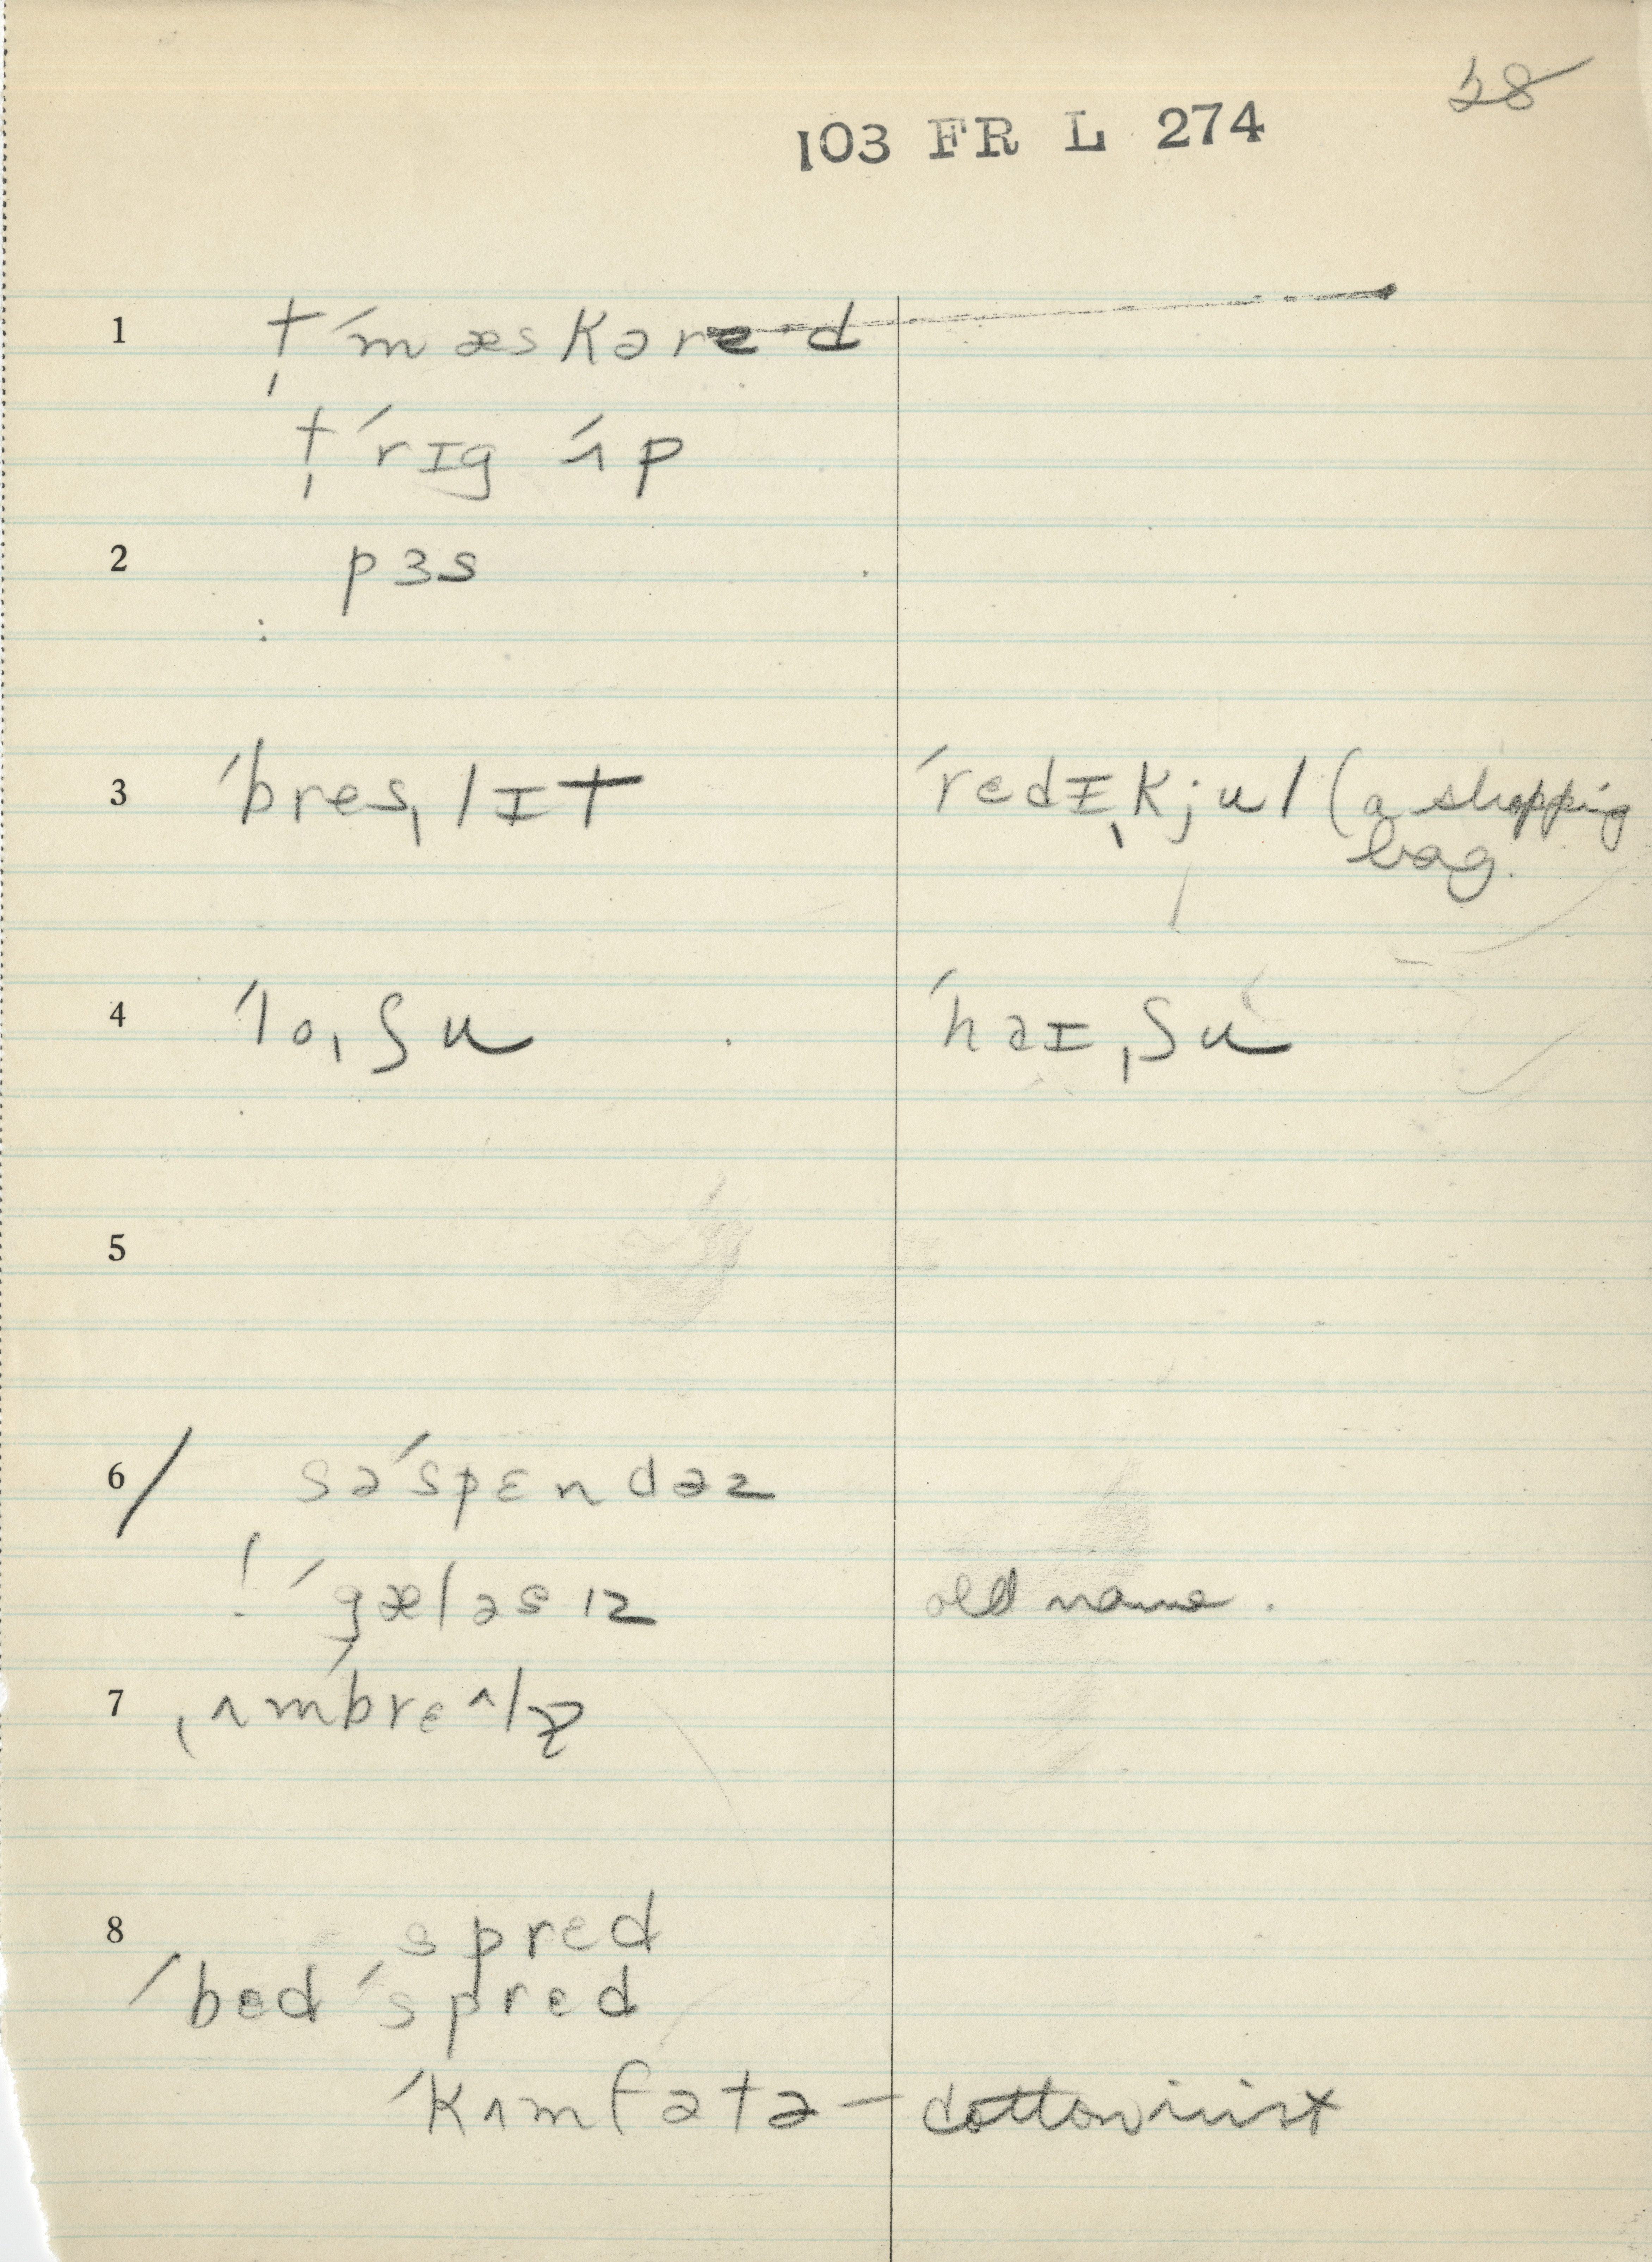 28
103 FR L 274
1 †ˈmæskəred
†ˈrɪg ˈʌp
2 pɜs
3 ˈbresˌlɪt ˈredɪˌkjul (a shopping
bag.
4 ˈloˌʃu ˈhaɪˌʃu
5
6 səˈspɛndəz
! ˈgæləsɪz old name.
7 ˌʌmˈbrɛ^lz̨
8 spred
ˈbedˈspred
ˈkʌmfətə –